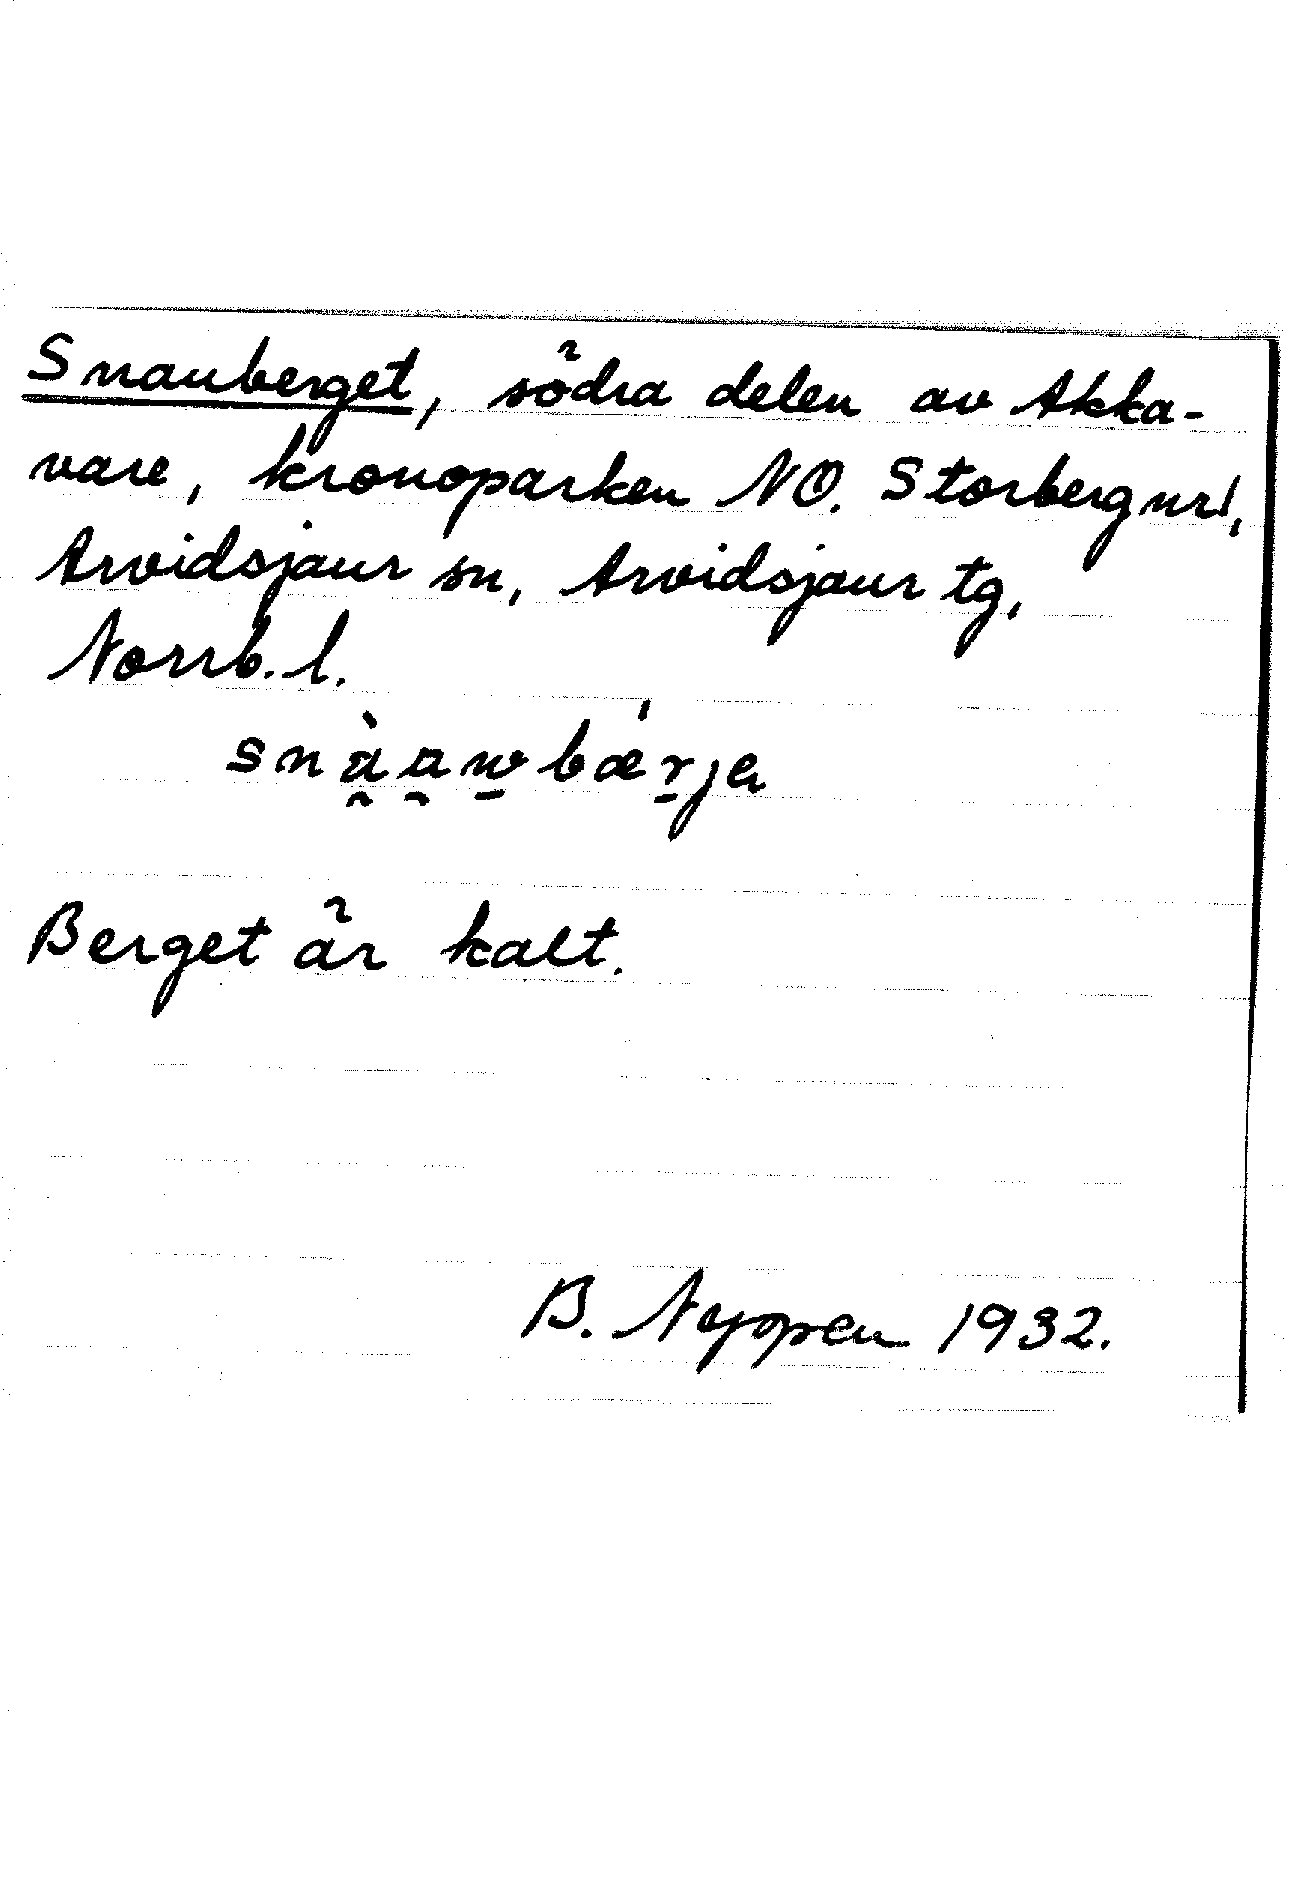 Snauberget, södra delen av Akka-
vare, kronoparken NO. Storberg nr 1,
Arvidsjaur sn, Arvidsjaur tg,
Norrb. l.
snàa̯w̠bær̠ja
Berget är kalt.
B. Nyppen 1932.